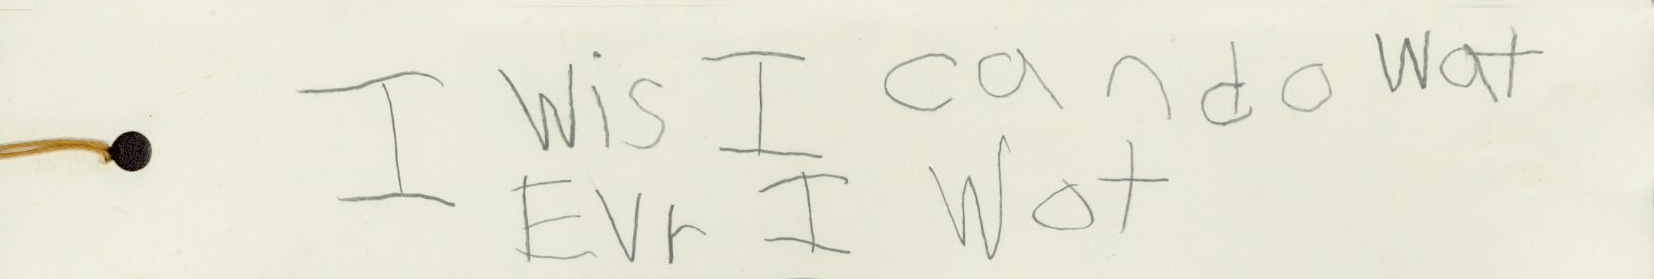 I Wis I can do Wat
EVr I Wot